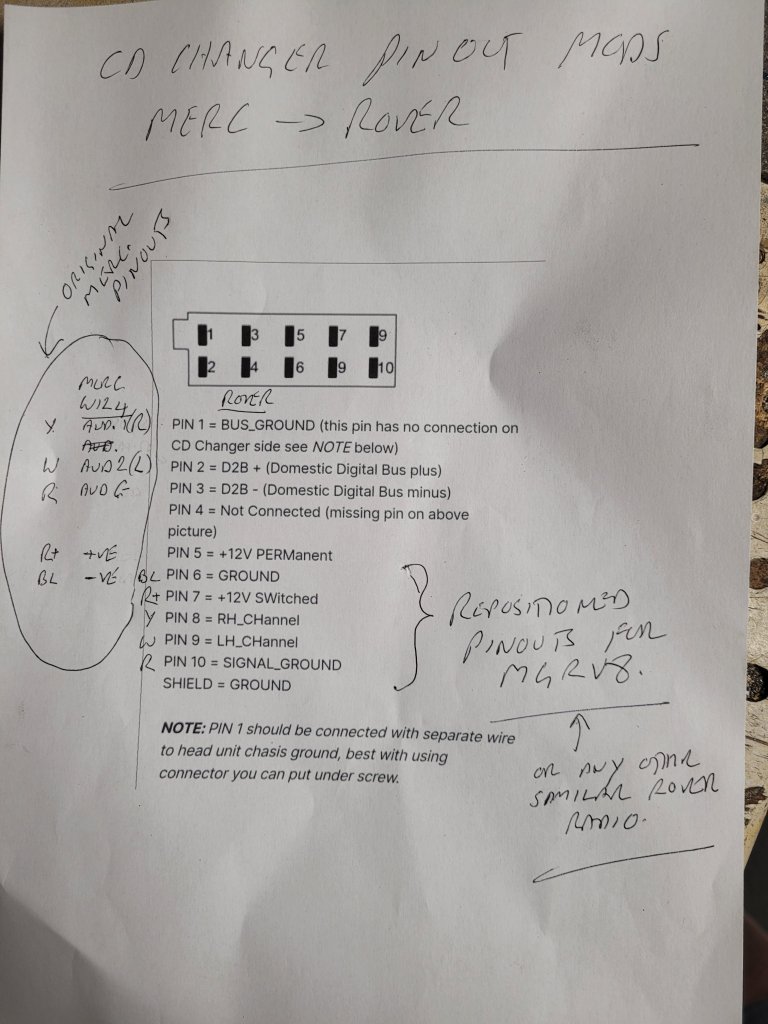 CD CHANGER PINOUT MODS
MERC → ROVER
ORIGINAL
MERC.
PINOUTS
1 3 5 7 9
2 4 6 9 10
MERC
W124
ROVER
Y AUD.1(R) PIN 1 = BUS_GROUND (this pin has no connection on
AUD. CD Changer side see NOTE below)
W AUD2(L) PIN 2 = D2B + (Domestic Digital Bus plus)
R AUD G PIN 3 = D2B - (Domestic Digital Bus minus)
PIN 4 = Not Connected (missing pin on above
picture)
R+ +VE PIN 5 = +12V PERManent
BL -VE BL PIN 6 = GROUND
R+ PIN 7 = +12V SWitched
Y PIN 8 = RH_CHannel
W PIN 9 = LH_CHannel
R PIN 10 = SIGNAL_GROUND
SHIELD = GROUND
REPOSITIONED
PINOUTS FOR
MGRV8.
NOTE: PIN 1 should be connected with separate wire
to head unit chasis ground, best with using
connector you can put under screw.
OR ANY OTHER
SIMILAR ROVER
RADIO.